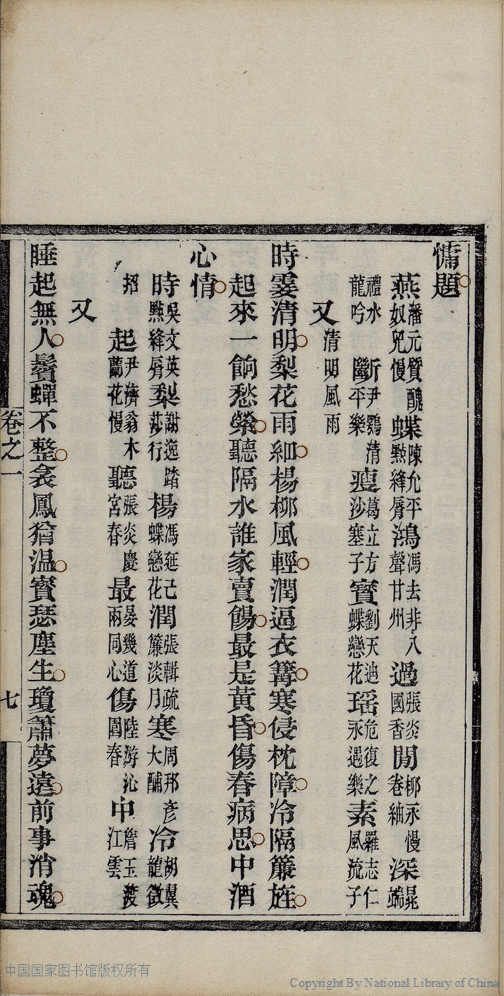 慵題
燕潘元質醜奴兒慢蝶陳允平點絳脣鴻馮去非八聲甘州過張炎國香閒柳永慢卷紬深晁端
禮水龍吟斷尹鶚清平樂瘦葛立方沙塞子寶劉天迪蝶戀花瑶危復之永遇樂素羅志仁風流子
又清明風雨
時霎清明梨花雨細楊柳風輕潤逼衣篝寒侵枕障冷隔簾旌
起來一餉愁縈聽隔水誰家賣餳最是黃昏傷春病思中酒
心情
時吳文英點絳脣梨謝逸踏莎行楊馮延己蝶戀花潤張輯疏簾淡月寒周邦彥大酺冷胡翼龍徵
招起尹濟翁木蘭花慢聽張炎慶宮春最晏幾道兩同心傷陸游沁園春中詹玉渡江雲
又
睡起無人鬢蟬不整衾鳳猶温寶瑟塵生瓊簫夢遠前事消魂
卷之一
七
中国国家图书馆版权所有
Copyright By National Library of China